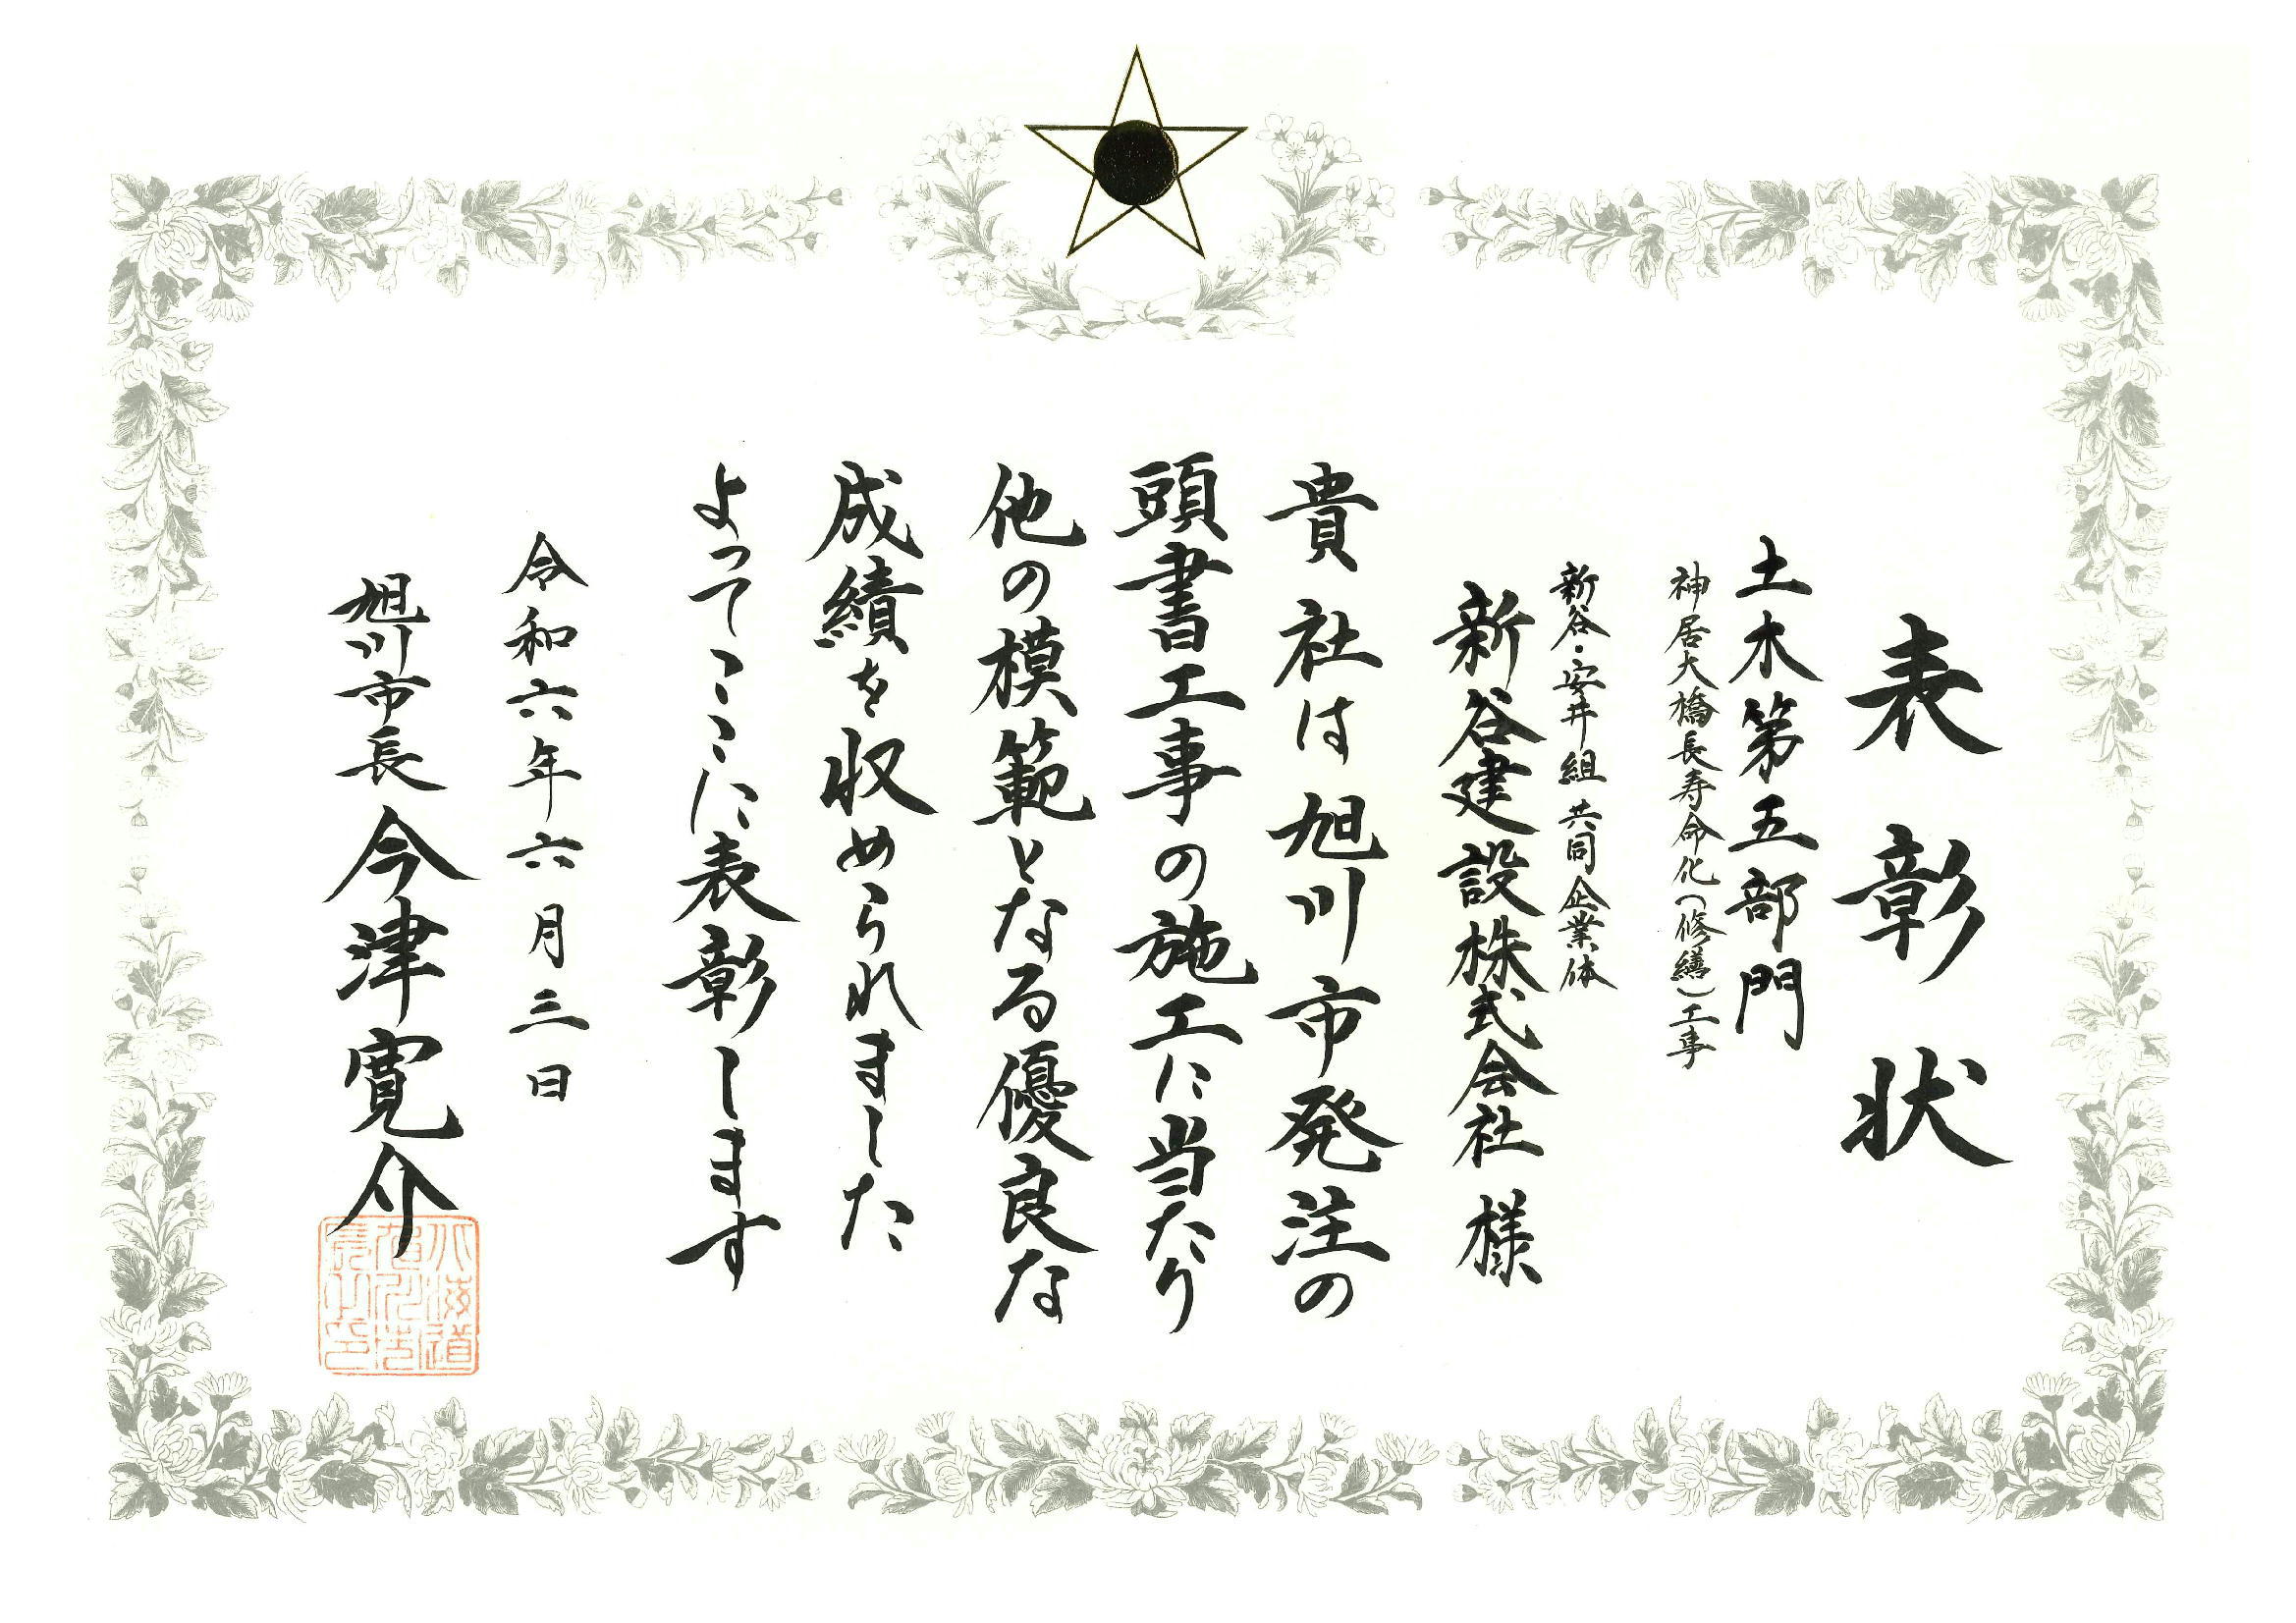 表彰状
土木第五部門
神居大橋長寿命化(修繕)工事
新谷・安井組共同企業体
新谷建設株式会社 様
貴社は旭川市発注の
頭書工事の施工に当たり
他の模範となる優良な
成績を収められました
よってここに表彰します
令和六年六月三日
旭川市長 今津寛介
北海道
旭川市
長之印